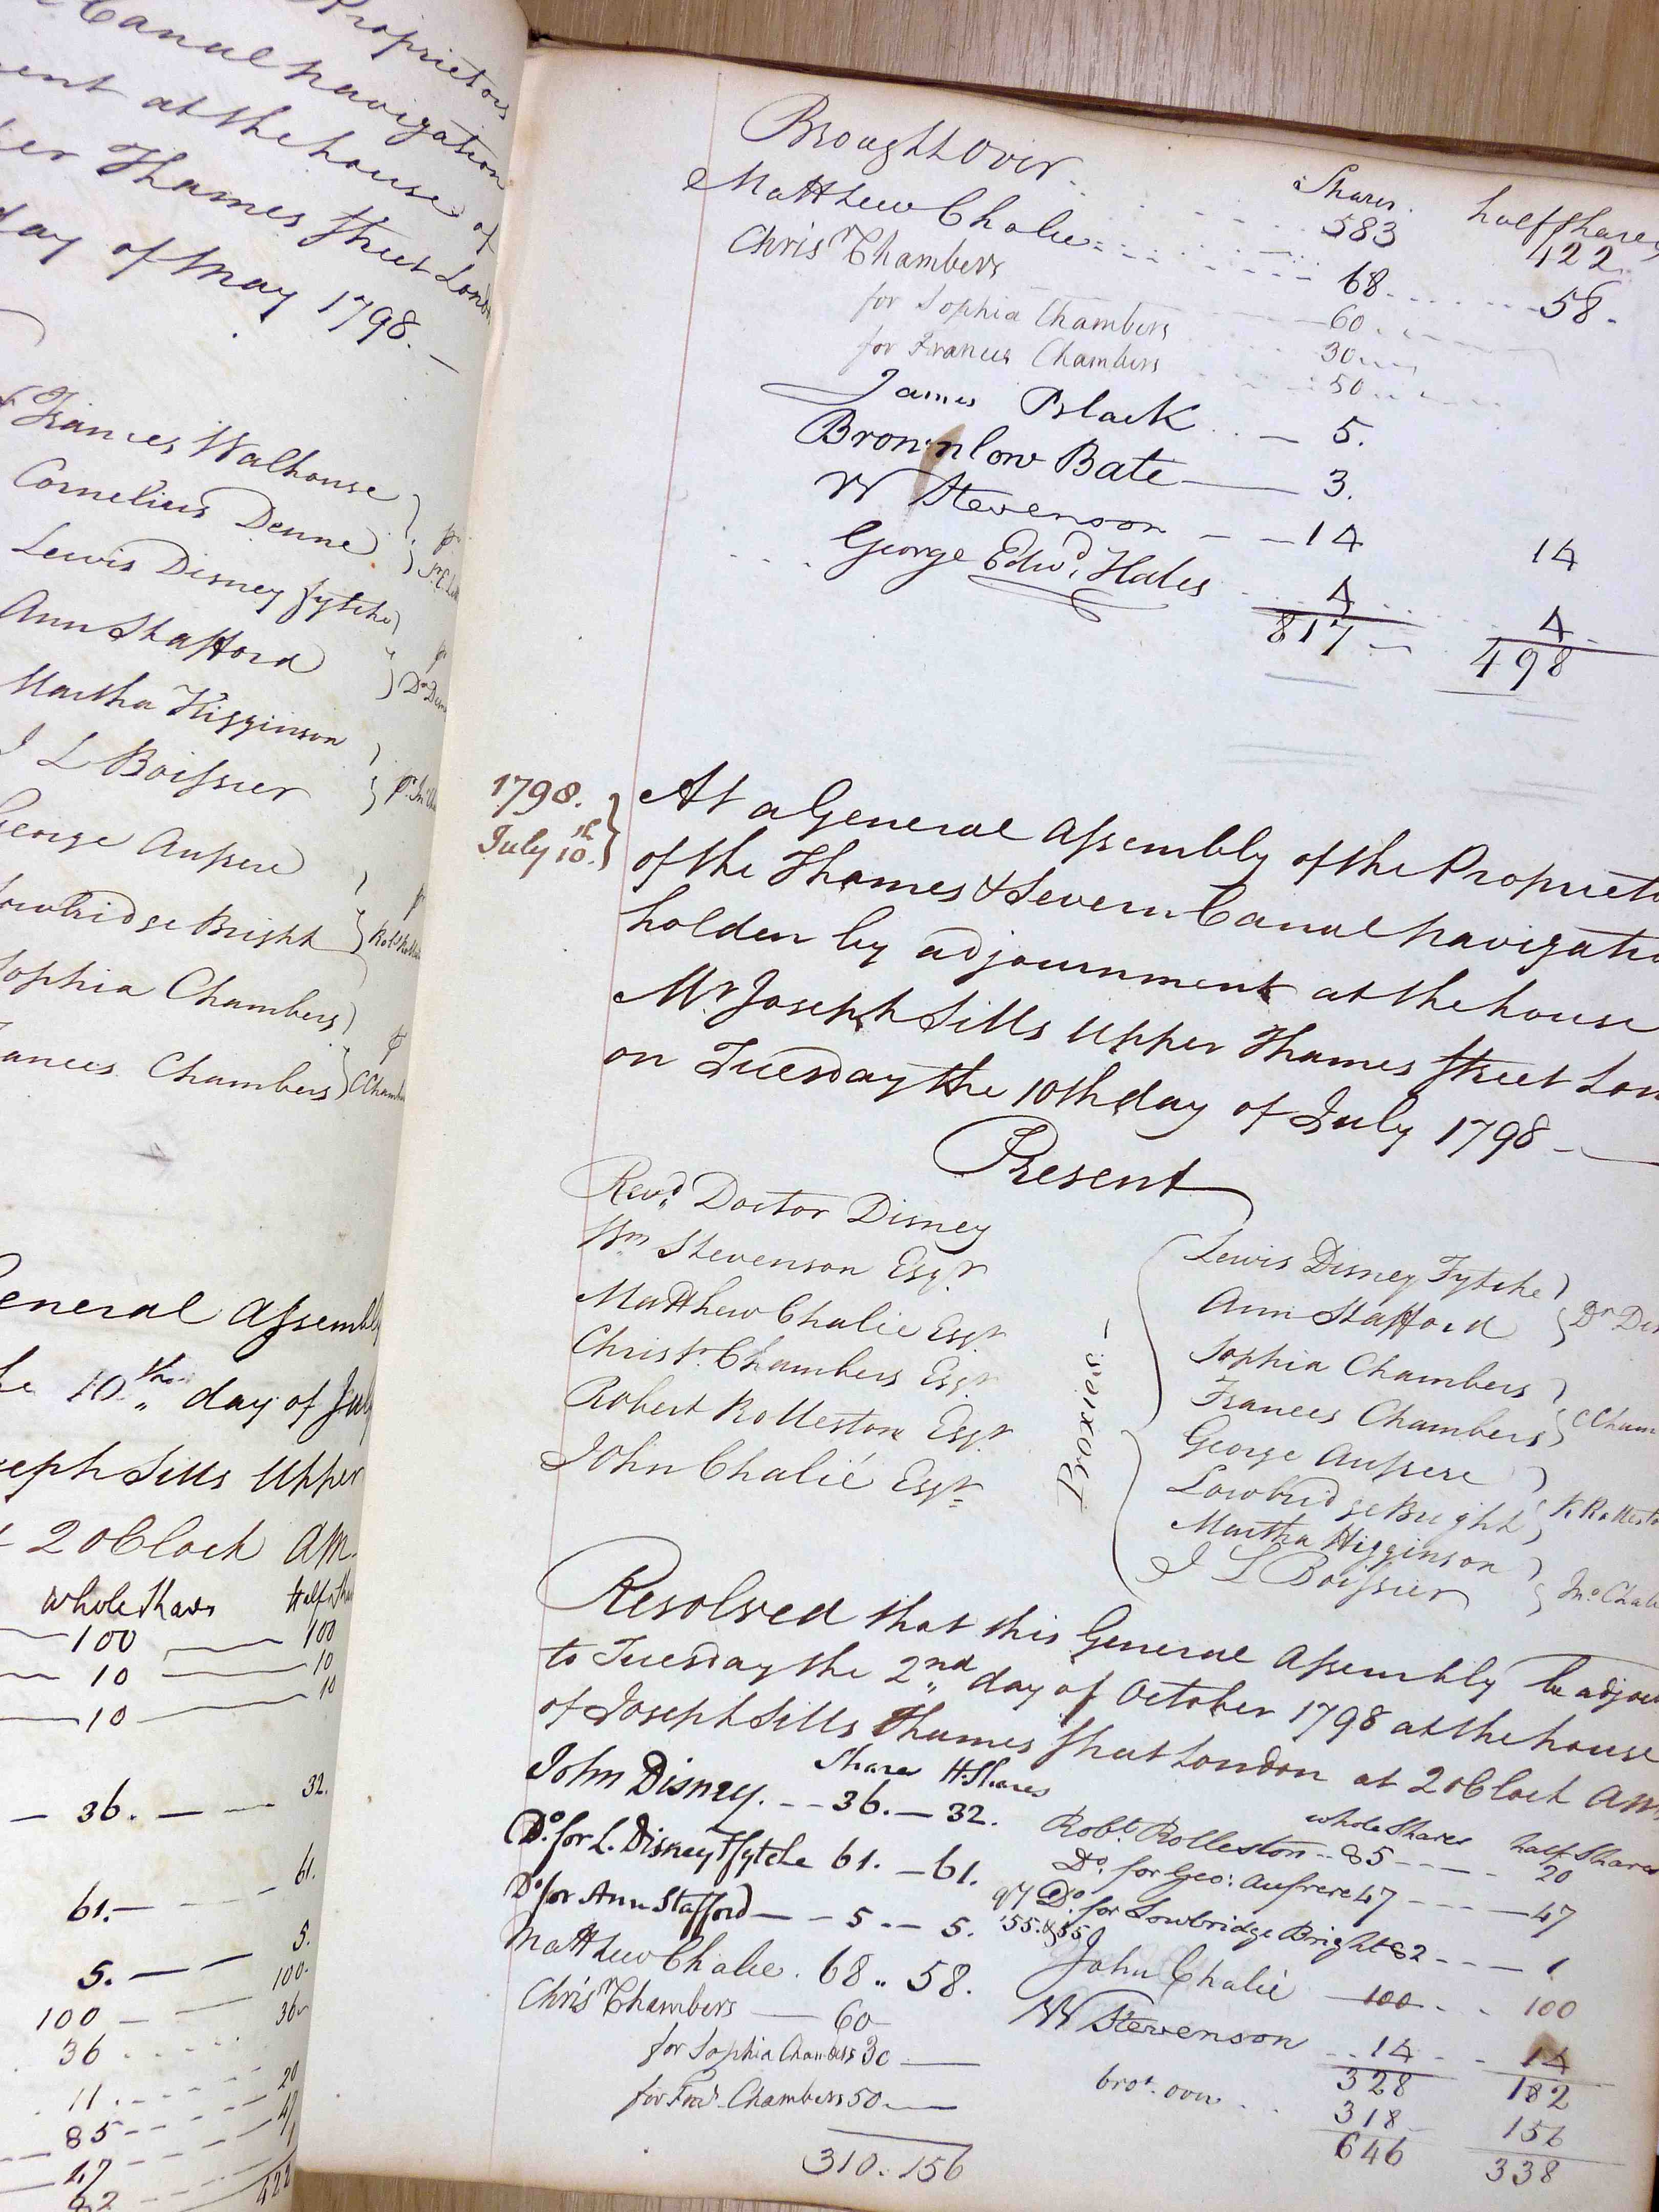 Proprietors
Canal navigation
at the house of
Thames Street London
day of May 1798.
Frances Walhouse
Cornelius Denne
Lewis Disney ffytche
Ann Stafford
Martha Higginson
J L Boissier
George Aufrere
Lowbridge Bright
Sophia Chambers
Frances Chambers
General Assembly
10th day of July
Joseph Sills Upper
2 oClock AM.
whole Shares
100 100
10 10
10 10
36. 32.
61. 61.
5. 5.
100 100.
36 36
11
85 20
47 47
82 1
422
Brought Over
Shares half Shares
583 422
Matthew Chalie 68 58.
Chrisr Chambers 60
for Sophia Chambers 30
for Frances Chambers 50
James Black 5.
Brownlow Bate 3.
W Stevenson 14 14
George Edwd. Hales 4 4
817 498
1798.
July 10th.
At a General Assembly of the Proprieto
of the Thames & Severn Canal navigatio
holden by adjournment at the house
Mr. Joseph Sills Upper Thames Street Lon
on Tuesday the 10th day of July 1798
Present
Revd. Doctor Disney
Wm Stevenson Esqr
Matthew Chalie Esqr
Christr. Chambers Esqr
Robert Rolleston Esqr.
John Chalié Esqr.
Proxies
Lewis Disney Fytche
Ann Stafford
Dr Dis
Sophia Chambers
Frances Chambers
C Cham
George Aufrere
Lowbridge Bright
R Rollesto
Martha Higginson
J L Boissier
Jno. Chali
Resolved that this General Assembly be adjou
to Tuesday the 2nd day of October 1798 at the house
of Joseph Sills Thames Street London at 2 oClock AM
Shares H. Shares
John Disney. 36. 32.
Do. for L. Disney Ffytche 61. 61.
Do for Ann Stafford 5 5.
Matthew Chalie. 68 58.
Chrisr Chambers 60
for Sophia Chambers 30
for Fras. Chambers 50
310. 156
whole Shares half Shares
Robt. Rolleston 85 20
Do. for Geo: Aufrere 47 47
Do. for Lowbridge Bright 82 1
John Chalié 100 100
W Stevenson 14 14
328 182
brot. over 318 156
646 338